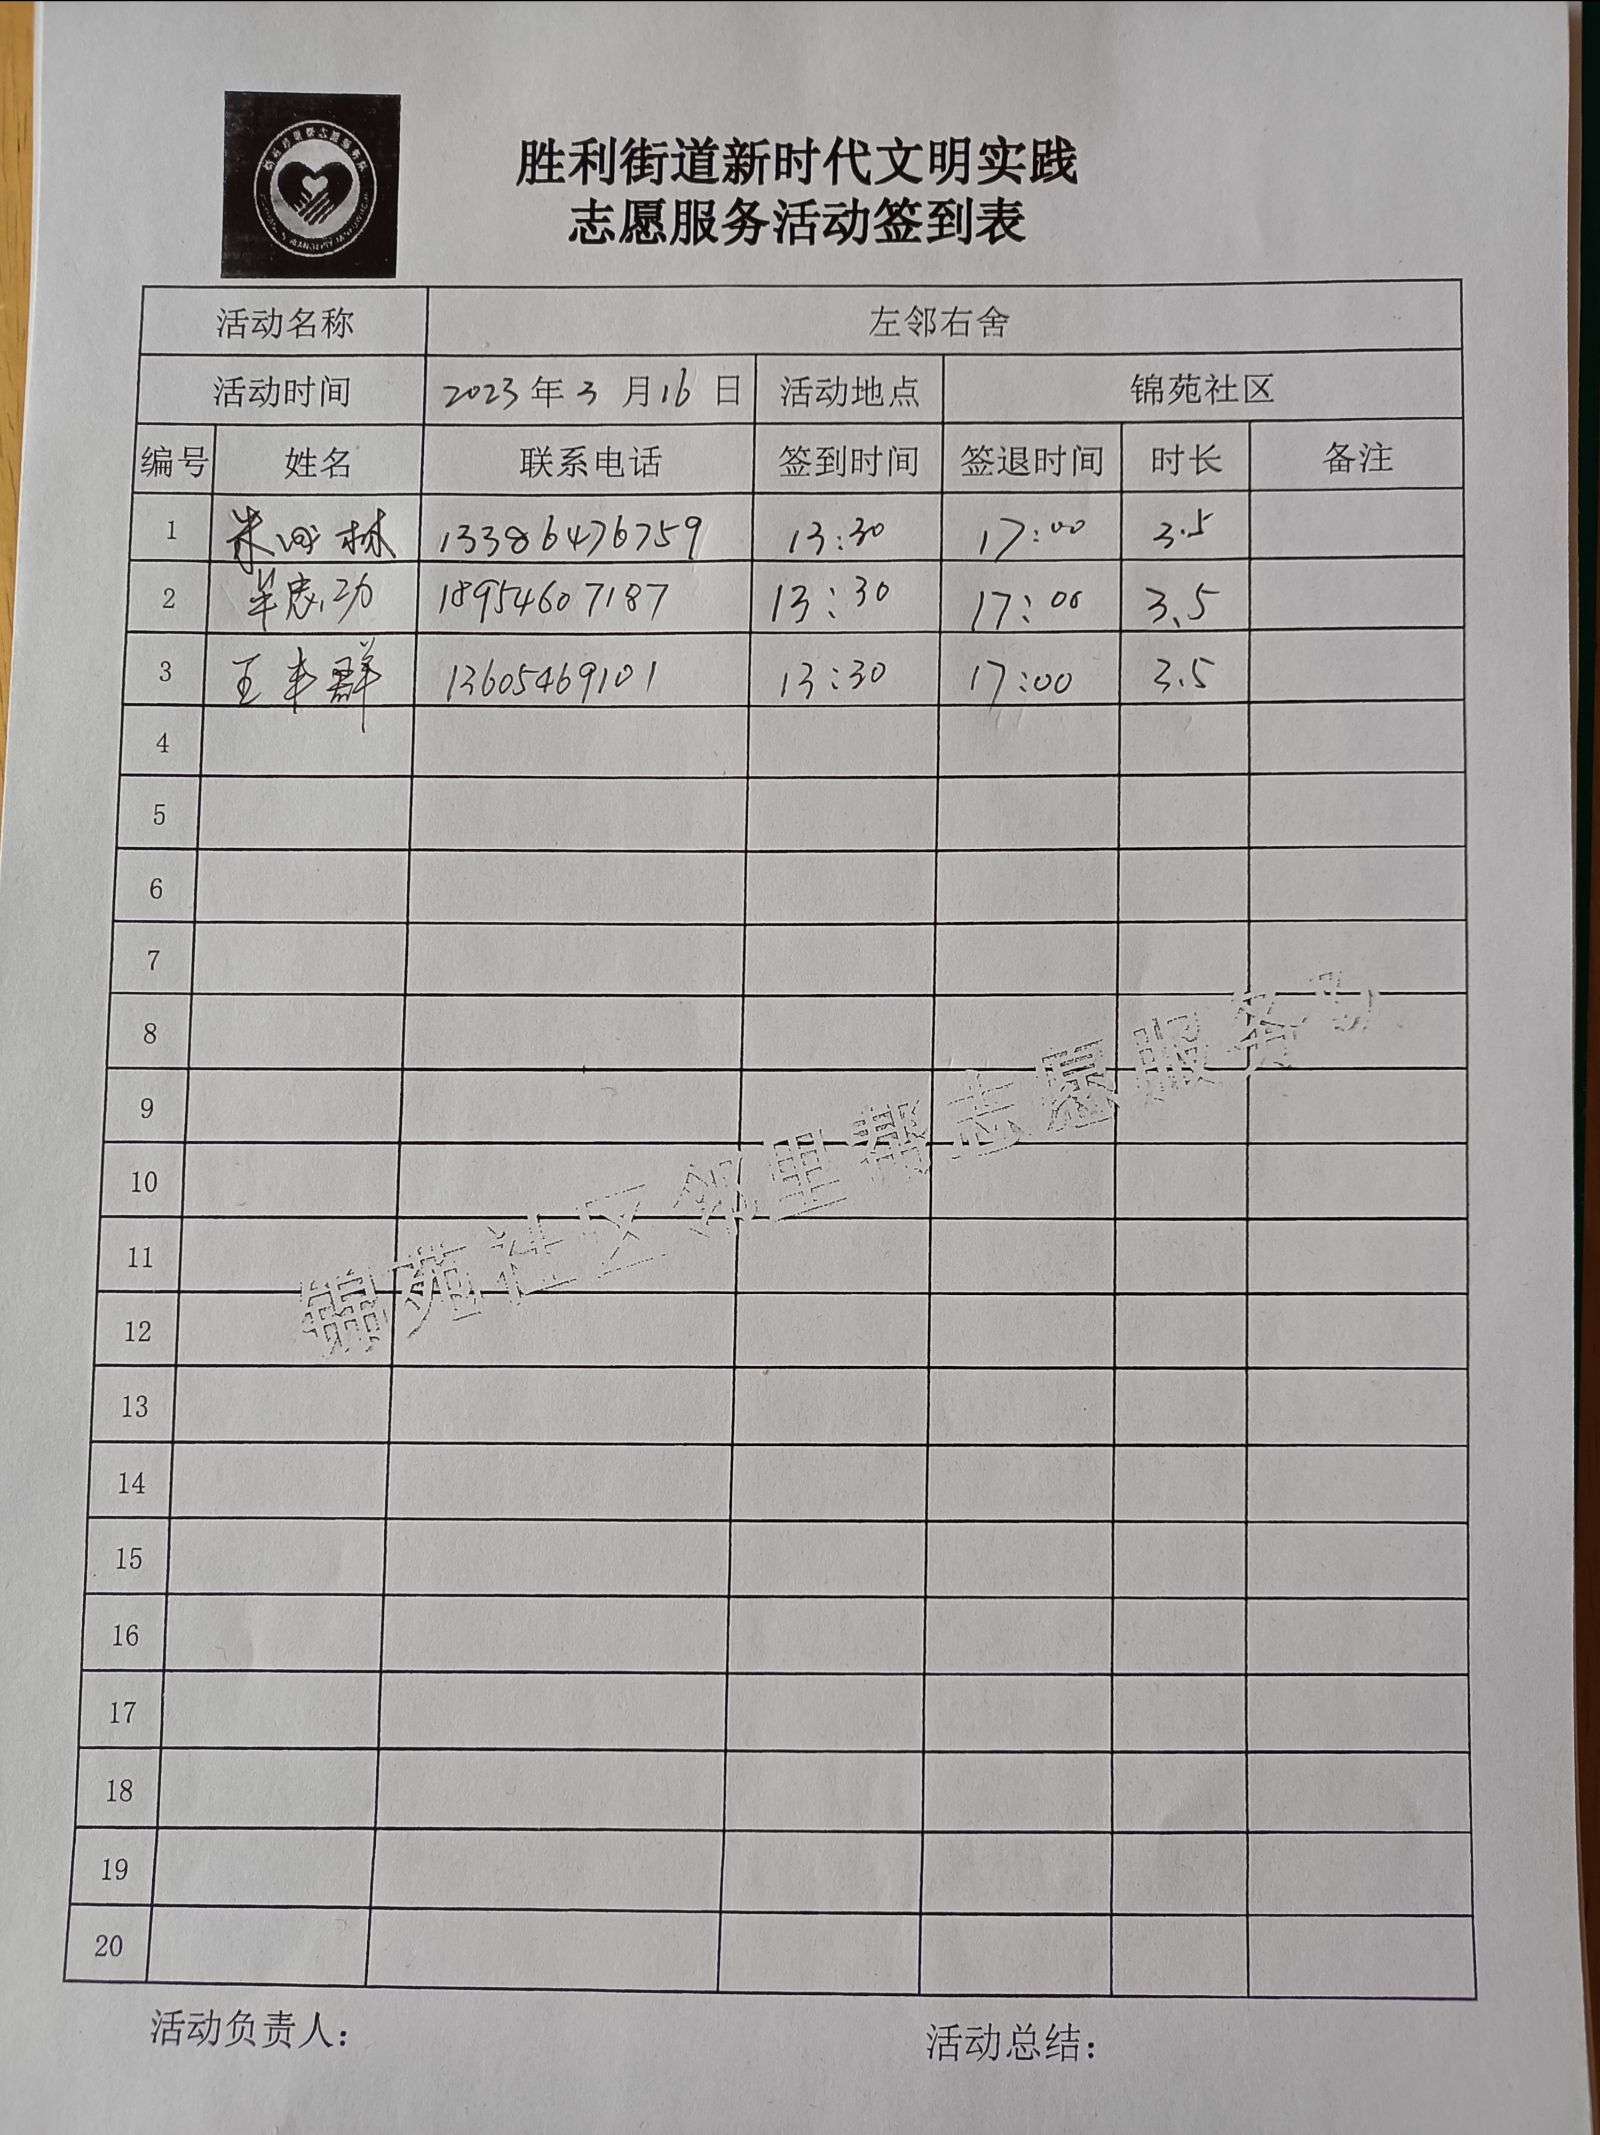 胜利街道新时代文明实践
志愿服务活动签到表
活动名称 左邻右舍
活动时间 2023年3月16日 活动地点 锦苑社区
编号 姓名 联系电话 签到时间 签退时间 时长 备注
1 林 13386476759 13:30 17:00 3.5
2 18954607187 13:30 17:00 3.5
3 王丰群 13605469101 13:30 17:00 3.5
4
5
6
7
8
9
10
11
12
13
14
15
16
17
18
19
20
锦苑社区邻里帮志愿服务
活动负责人: 活动总结: